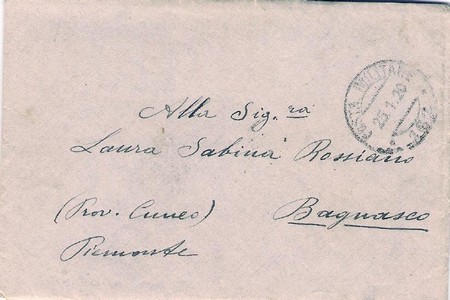 POSTA MILITARE
25.1.20
Alla Sig.ra
Laura Sabina Rossiano
(Prov. Cuneo) Bagnasco
Piemonte